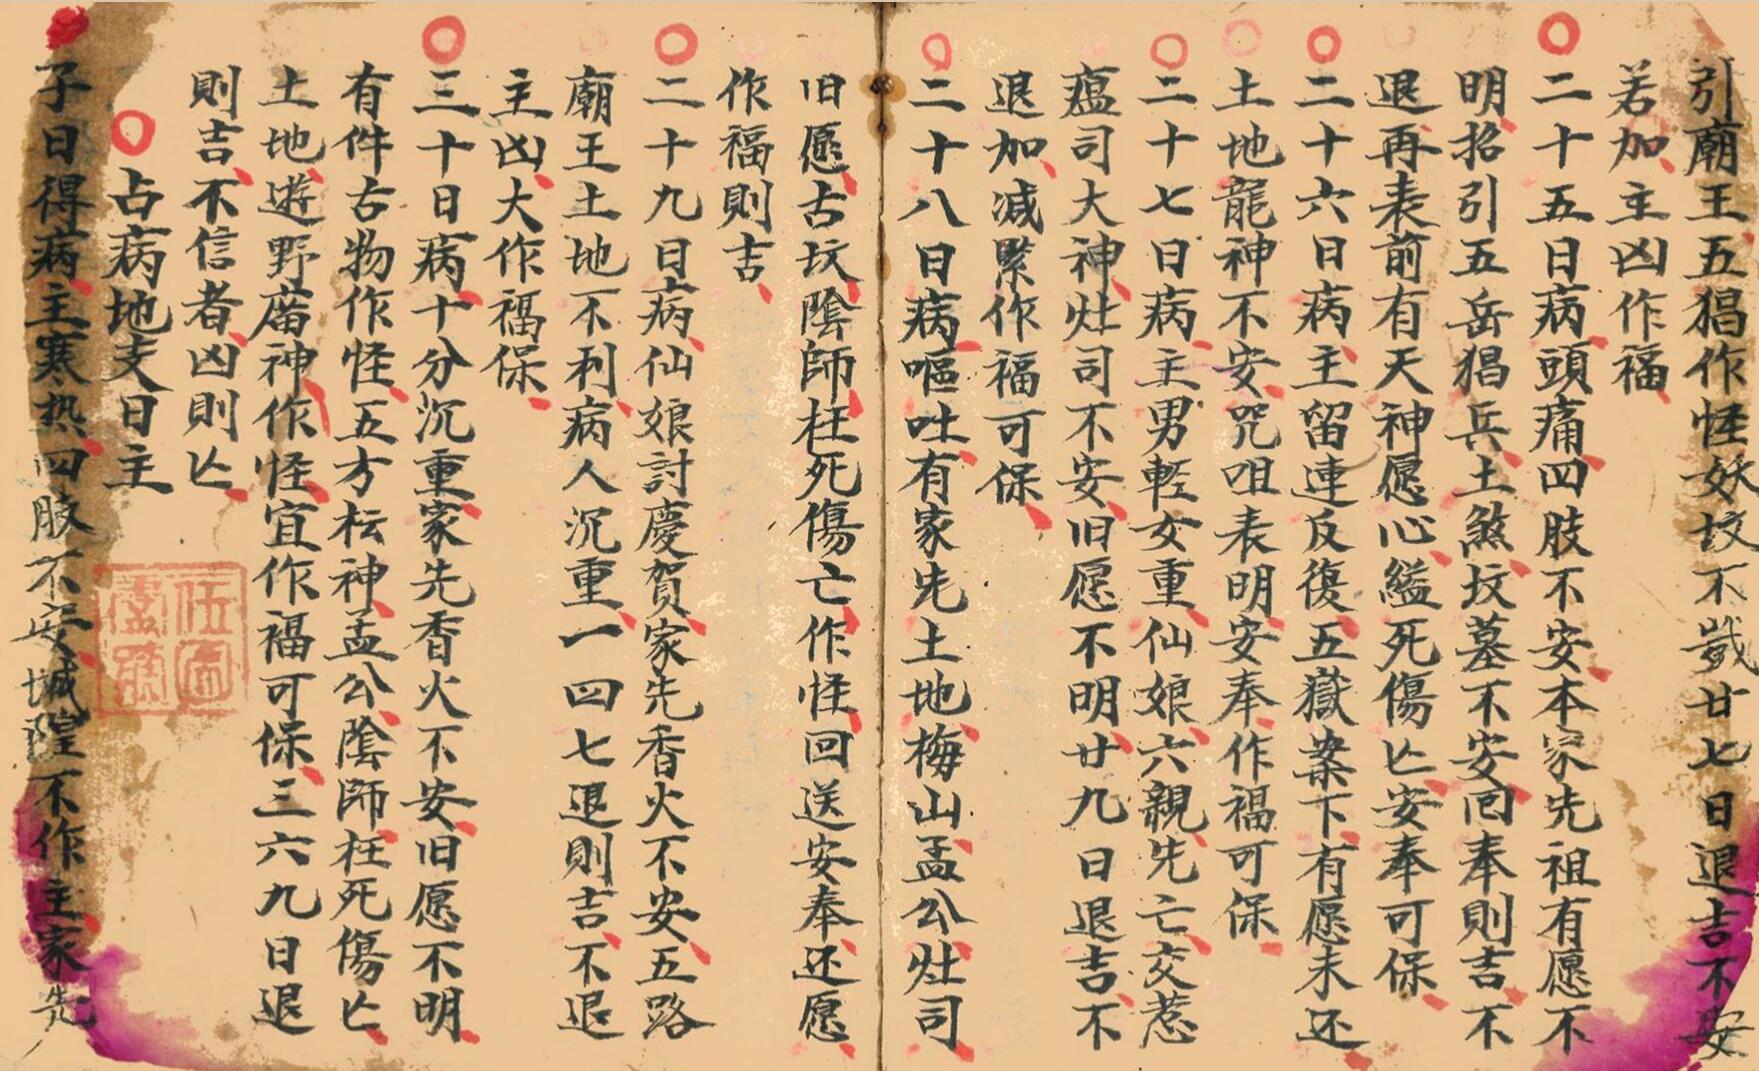 引廟王五猖作怪妖坟不歲廿七日退吉不安
若加主凶作福
二十五日病頭痛四肢不安本家先祖有愿不
明招引五岳猖兵土煞坟墓不安囘奉則吉不
退再表前有天神愿心縊死傷亡安奉可保
二十六日病主留連反復五嶽案下有愿未还
土地龍神不安咒咀表明安奉作福可保
二十七日病主男輕女重仙娘六親先亡交惹
瘟司大神灶司不安旧愿不明廿九日退吉不
退加減緊作福可保
二十八日病嘔吐有家先土地梅山孟公灶司
旧愿古坟陰師枉死傷亡作怪回送安奉还愿
作福則吉
二十九日病仙娘討慶賀家先香火不安五路
廟王土地不利病人沉重一四七退則吉不退
主凶大作福保
三十日病十分沉重家先香火不安旧愿不明
有件古物作怪五方枟神孟公陰師枉死傷亡
土地遊野廣神作怪宜作福可保三六九日退
則吉不信者凶則亡
占病地支日主
子日得病主寒热四肢不安城隍不作主家先